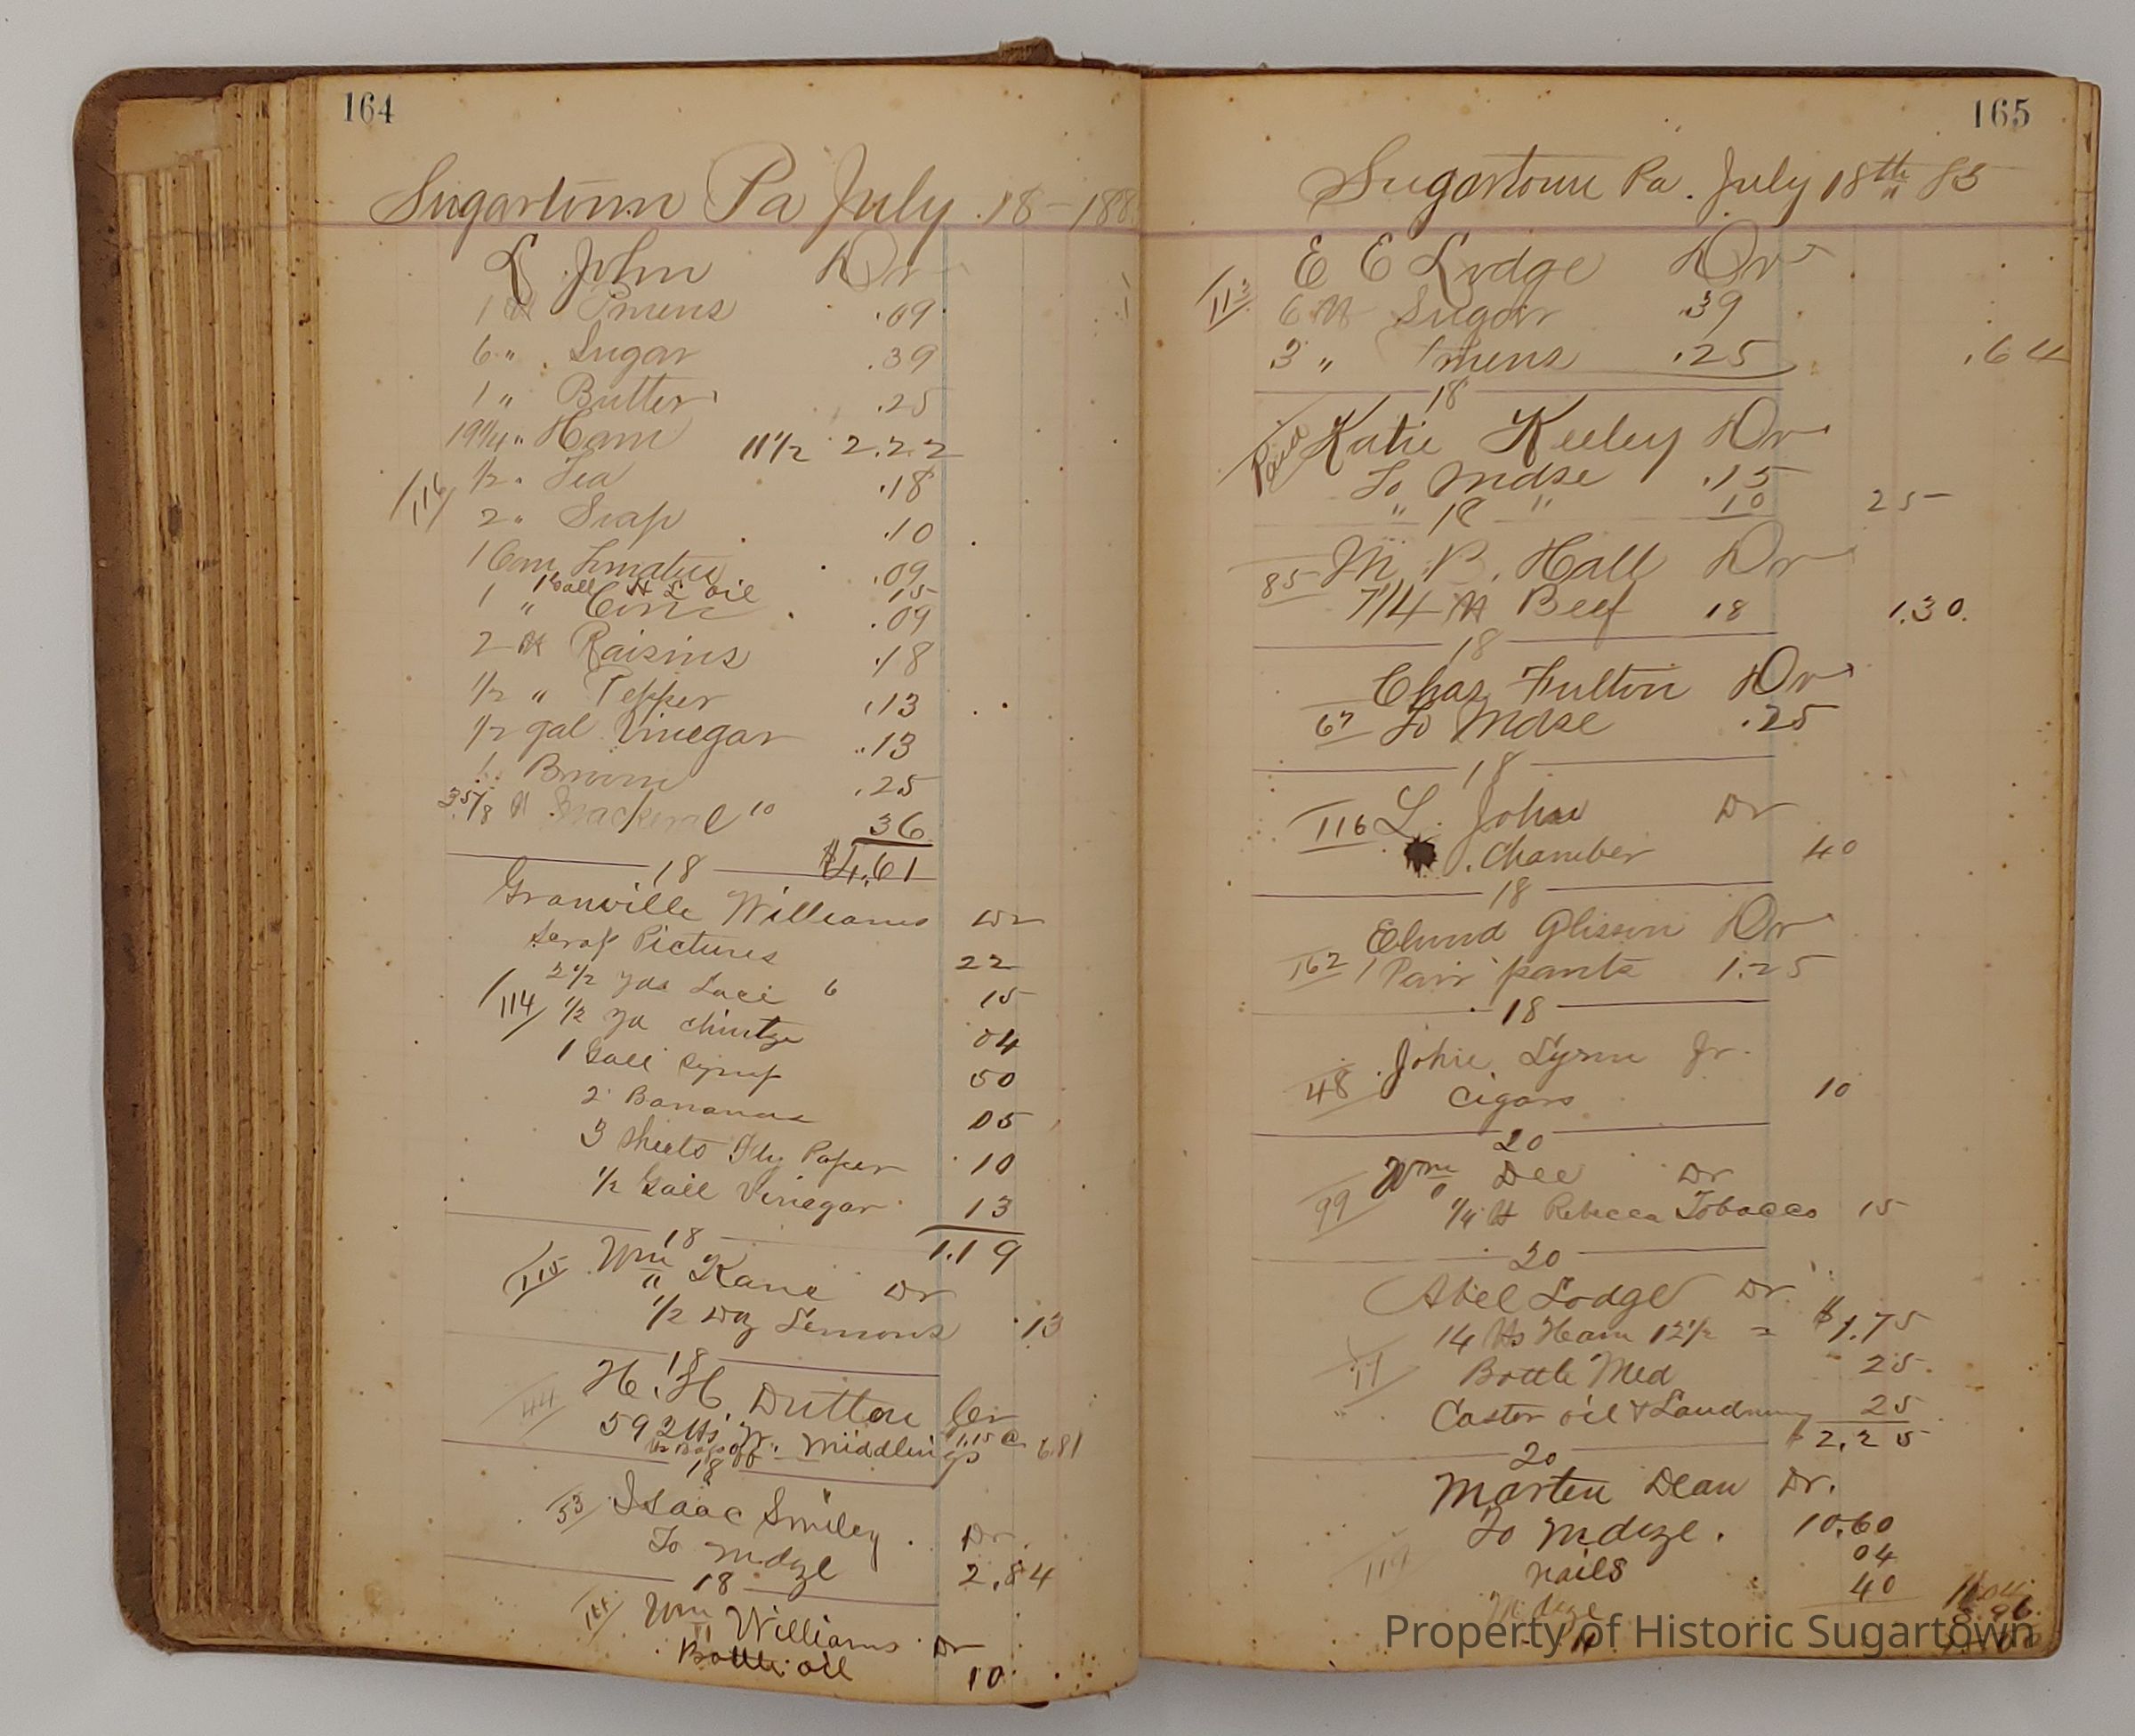 164
Sugartown Pa July 18 - 188
L John Dr
1 lb Prunes .09
6 " Sugar .39
1 " Butter .25
19 1/4 " Ham 11 1/2 2.22
1/2 " Tea .18
116
2 " Soap .10
1 Can Tomatoes .09
1 Gall H L Oil 15
1 " Corn .09
2 lb Raisins .18
1/2 " Pepper .13
1/2 gal Vinegar .13
1 Broom .25
3 5/8 lb Mackeral 10 36
18 $4.61
Granville Williams Dr
Scrap Pictures 22
2 1/2 yds Lace 6 15
114 1/2 yd chintze 04
1 Gall Syrup 50
2 Bananas 05
3 Sheets Fly Paper 10
1/2 Gall Vinegar 13
18 1.19
115 Wm Kane Dr
1/2 Dz Lemons .13
18
44 H. H. Dutton Cr
592 lbs W. Middlings 1.15 6.81
18
53 Isaac Smiley Dr.
To mdze 2.84
18
Wm Williams Dr
Bottle oil 10
165
Sugartown Pa. July 18th 85
E E Lodge Dr
113 6 lb Sugar .39
3 " Prunes .25 .64
18
Paid Katie Keeley Dr
To Mdse .15
" " 10 25
18
85 M. B. Hall Dr
7 1/4 lb Beef 18 1.30
18
Chas Fulton Dr
67 To Mdse .25
18
116 L. John Dr
Chamber 40
18
Elwood Glisson Dr
162 1 Pair pants 1.25
18
Johie Lynn Jr.
48 Cigars 10
20
Wm Dee Dr
99 1/4 lb Rebecca Tobacco 15
20
Abel Lodge Dr
14 lbs Ham 12 1/2 = $1.75
11 Bottle Med 25
Castor oil & Laudnum 25
$2.25
20
Marten Dean Dr.
To mdze. 10.60
nails 04
Mdze 40
Property of Historic Sugartown